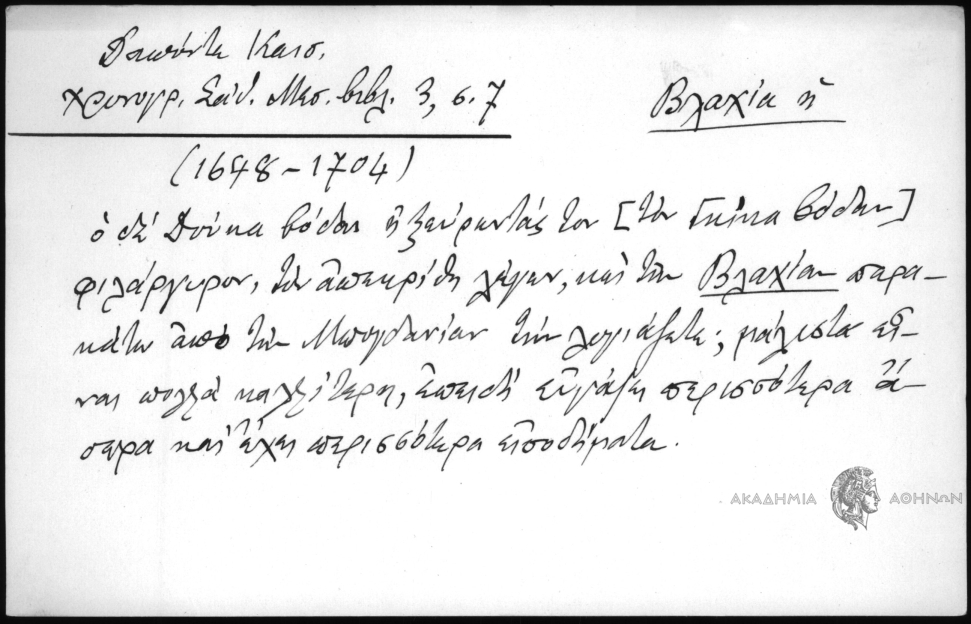 Δαπόντε Καισ.
Χρονογρ. Σάθ. Μεσ. βιβλ. 3, σ. 7
Βλαχία ἡ
(1648-1704)
ὁ δὲ Δούκα βόδας ἠξεύροντάς τον [τὸν Γκίκα βόδαν]
φιλάργυρον, τὸν ἀπεκρίθη λέγων, καὶ τὴν Βλαχίαν παρα-
κάτω ἀπὸ τὴν Μπογδανίαν τὴν λογιάζετε; μάλιστα εἶ-
ναι πολλὰ καλλίτερη, ἐπειδὴ εὐγάζει περισσότερα ἄ-
σπρα καὶ ἔχει περισσότερα εἰσοδήματα.
ΑΚΑΔΗΜΙΑ ΑΘΗΝΩΝ